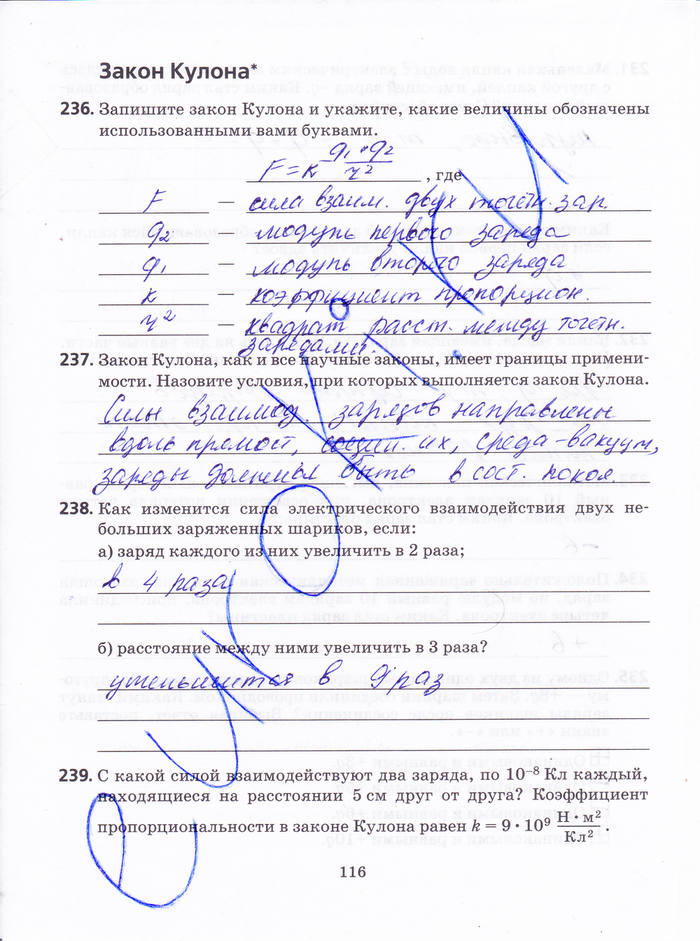 Закон Кулона*
236. Запишите закон Кулона и укажите, какие величины обозначены
использованными вами буквами.
F = k q₁ · q₂ / r² , где
F — сила взаим. двух точечн. зар.
q₂ — модуль первого заряда
q₁ — модуль второго заряда
k — коэффициент пропорцион.
r² — квадрат расст. между точечн.
зарядами.
237. Закон Кулона, как и все научные законы, имеет границы примени-
мости. Назовите условия, при которых выполняется закон Кулона.
Силы взаимод. зарядов направлены
вдоль прямост, их, среда-вакуум,
заряды должны быть в сост. покоя.
238. Как изменится сила электрического взаимодействия двух не-
больших заряженных шариков, если:
а) заряд каждого из них увеличить в 2 раза;
в 4 раза
б) расстояние между ними увеличить в 3 раза?
уменьшится в 9 раз
239. С какой силой взаимодействуют два заряда, по 10⁻⁸ Кл каждый,
находящиеся на расстоянии 5 см друг от друга? Коэффициент
пропорциональности в законе Кулона равен k = 9 · 10⁹ Н · м² / Кл² .
116